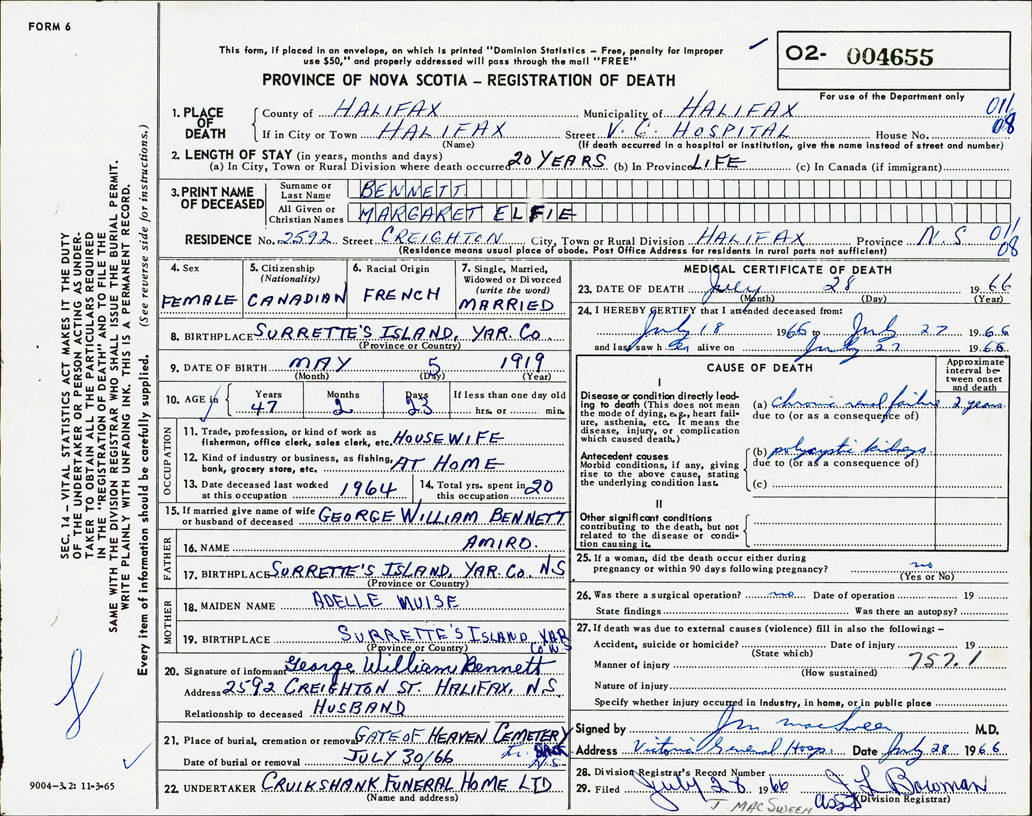 FORM 6
This form, if placed in an envelope, on which is printed "Dominion Statistics – Free, penalty for improper
use $50," and properly addressed will pass through the mail "FREE"
O2- 004655
PROVINCE OF NOVA SCOTIA – REGISTRATION OF DEATH
For use of the Department only
1. PLACE OF DEATH
County of HALIFAX Municipality of HALIFAX 011/
If in City or Town HALIFAX Street V. G. HOSPITAL House No. 08
(Name) (If death occurred in a hospital or institution, give the name instead of street and number)
2. LENGTH OF STAY (in years, months and days)
(a) In City, Town or Rural Division where death occurred 20 YEARS (b) In Province LIFE (c) In Canada (if immigrant)
3. PRINT NAME OF DECEASED
Surname or Last Name BENNETT
All Given or Christian Names MARGARET ELFIE
RESIDENCE No. 2592 Street CREIGHTON City, Town or Rural Division HALIFAX Province N.S 011/
(Residence means usual place of abode. Post Office Address for residents in rural parts not sufficient) 08
4. Sex
FEMALE
5. Citizenship
(Nationality)
CANADIAN
6. Racial Origin
FRENCH
7. Single, Married,
Widowed or Divorced
(write the word)
MARRIED
8. BIRTHPLACE SURRETTE'S ISLAND, YAR. Co.
(Province or Country)
9. DATE OF BIRTH MAY 5 1919
(Month) (Day) (Year)
10. AGE in
Years Months Days If less than one day old
47 2 23 hrs. or min.
OCCUPATION
11. Trade, profession, or kind of work as
fisherman, office clerk, sales clerk, etc. HOUSEWIFE
12. Kind of industry or business, as fishing,
bank, grocery store, etc. AT HOME
13. Date deceased last worked
at this occupation 1964
14. Total yrs. spent in
this occupation 20
15. If married give name of wife
or husband of deceased GEORGE WILLIAM BENNETT
FATHER
16. NAME AMIRO.
17. BIRTHPLACE SURRETTE'S ISLAND, YAR. Co. N.S
(Province or Country)
MOTHER
18. MAIDEN NAME ADELLE MUISE
19. BIRTHPLACE SURRETTE'S ISLAND YAR
(Province or Country) Co N.S
20. Signature of informant George William Bennett
Address 2592 CREIGHTON ST. HALIFAX, N.S.
Relationship to deceased HUSBAND
21. Place of burial, cremation or removal GATE OF HEAVEN CEMETERY
Date of burial or removal JULY 30/66 N.S.
22. UNDERTAKER CRUIKSHANK FUNERAL HOME LTD
(Name and address)
MEDICAL CERTIFICATE OF DEATH
23. DATE OF DEATH July 28 1966
(Month) (Day) (Year)
24. I HEREBY CERTIFY that I attended deceased from:
July 18 1966 to July 27 1966
and last saw her alive on July 27 1966
CAUSE OF DEATH
Approximate
interval be-
tween onset
and death
I
Disease or condition directly lead-
ing to death (This does not mean
the mode of dying, e.g., heart fail-
ure, asthenia, etc. It means the
disease, injury, or complication
which caused death.)
(a) chronic renal failure 2 years
due to (or as a consequence of)
Antecedent causes
Morbid conditions, if any, giving
rise to the above cause, stating
the underlying condition last.
(b) polycystic kidneys
due to (or as a consequence of)
(c)
II
Other significant conditions
contributing to the death, but not
related to the disease or condi-
tion causing it.
25. If a woman, did the death occur either during
pregnancy or within 90 days following pregnancy? no
(Yes or No)
26. Was there a surgical operation? no Date of operation 19
State findings Was there an autopsy?
27. If death was due to external causes (violence) fill in also the following: –
Accident, suicide or homicide? Date of injury 19
(State which) 757.1
Manner of injury
(How sustained)
Nature of injury
Specify whether injury occurred in industry, in home, or in public place
Signed by J M MacSween M.D.
Address Victoria General Hosp. Date July 28 1966
28. Division Registrar's Record Number
29. Filed July 28 1966 J L Bowman
J. MACSWEEN asst (Division Registrar)
SEC. 14 – VITAL STATISTICS ACT MAKES IT THE DUTY
OF THE UNDERTAKER OR PERSON ACTING AS UNDER-
TAKER TO OBTAIN ALL THE PARTICULARS REQUIRED
IN THE "REGISTRATION OF DEATH" AND TO FILE THE
SAME WITH THE DIVISION REGISTRAR WHO SHALL ISSUE THE BURIAL PERMIT.
WRITE PLAINLY WITH UNFADING INK. THIS IS A PERMANENT RECORD.
Every item of information should be carefully supplied. (See reverse side for instructions.)
9004-3.2: 11-3-65